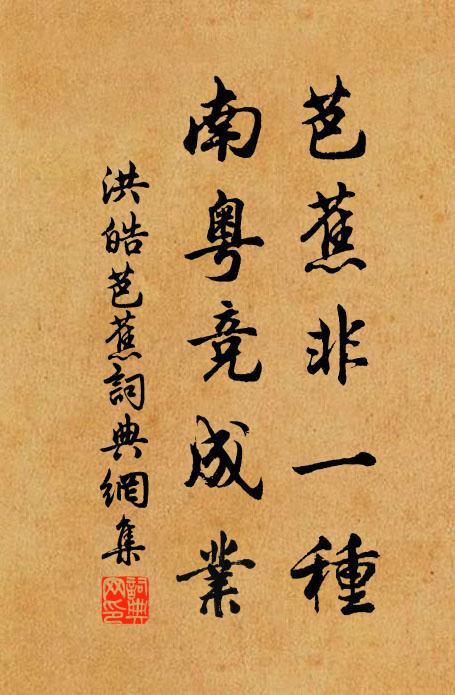 芭蕉非一種
南粵竞成業
洪皓芭蕉詞典網集
詞典网印